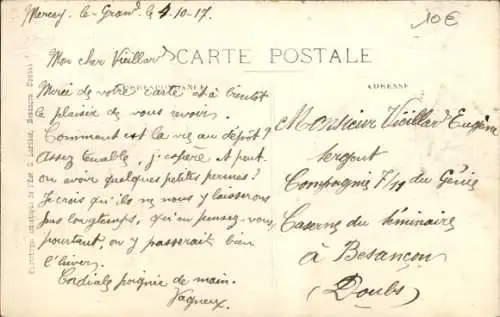 Mercey-le-Grand, le 4-10-17.
10€
CARTE POSTALE
Mon cher Vieillard
CORRESPONDANCE
ADRESSE
Merci de votre carte et à bientôt
le plaisir de vous revoir.
Comment est la vie au dépôt ?
Assez tenable, j'espère. Et peut-
on avoir quelques petites permes ?
Je crois qu'ils ne nous y laisserons
pas longtemps, qu'en pensez-vous,
pourtant on y passerait bien
l'hiver.
Cordiale poignée de main.
Vagneux.
Monsieur Vieillard Eugène
sergent
Compagnie 7/19 du Génie
Caserne du Séminaire
à Besançon
(Doubs)